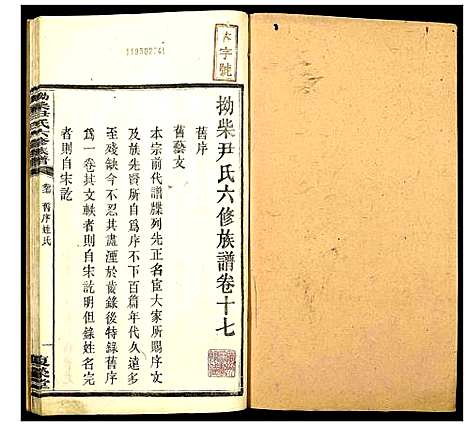 大字號
拗柴尹氏六修族譜卷十七
舊序
舊藝文
本宗前代譜牒列先正名宦大家所賜序文
及族先賢所自爲序不下百篇年代久遠多
至殘缺今不忍其盡湮於舊錄後特錄舊序
爲一卷其文軼者則自宋訖明但錄姓名完
者則自宋訖
拗柴尹氏六修族譜
舊序姓氏
一